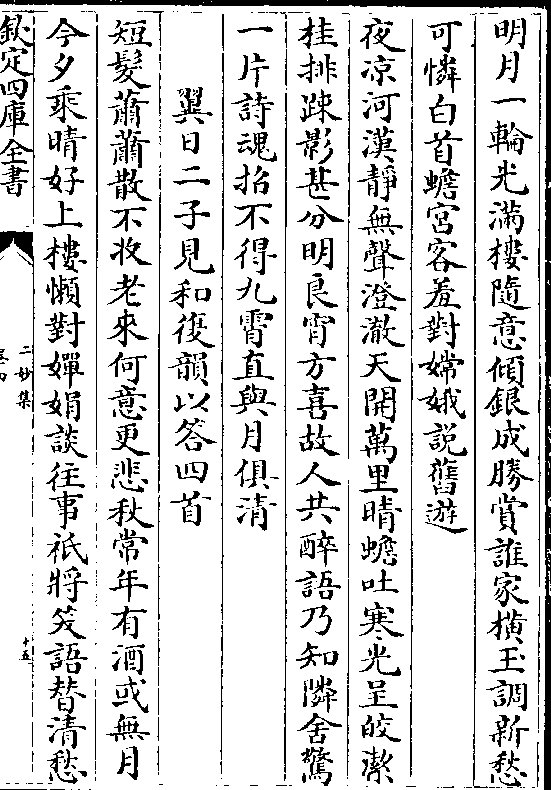 明月一輪光滿樓隨意傾銀成勝賞誰家橫玉調新愁
可憐白首蟾宮客羞對嫦娥説舊遊
夜凉河漢靜無聲澄澈天開萬里晴蟾吐寒光呈皎潔
桂排踈影甚分明良宵方喜故人共醉語乃知隣舍驚
一片詩魂招不得九霄直與月俱清
翼日二子見和復韻以答四首
短髮蕭蕭散不收老來何意更悲秋常年有酒或無月
今夕乘晴好上樓懶對嬋娟談往事祇將笑語替清愁
欽定四庫全書
二妙集
十五